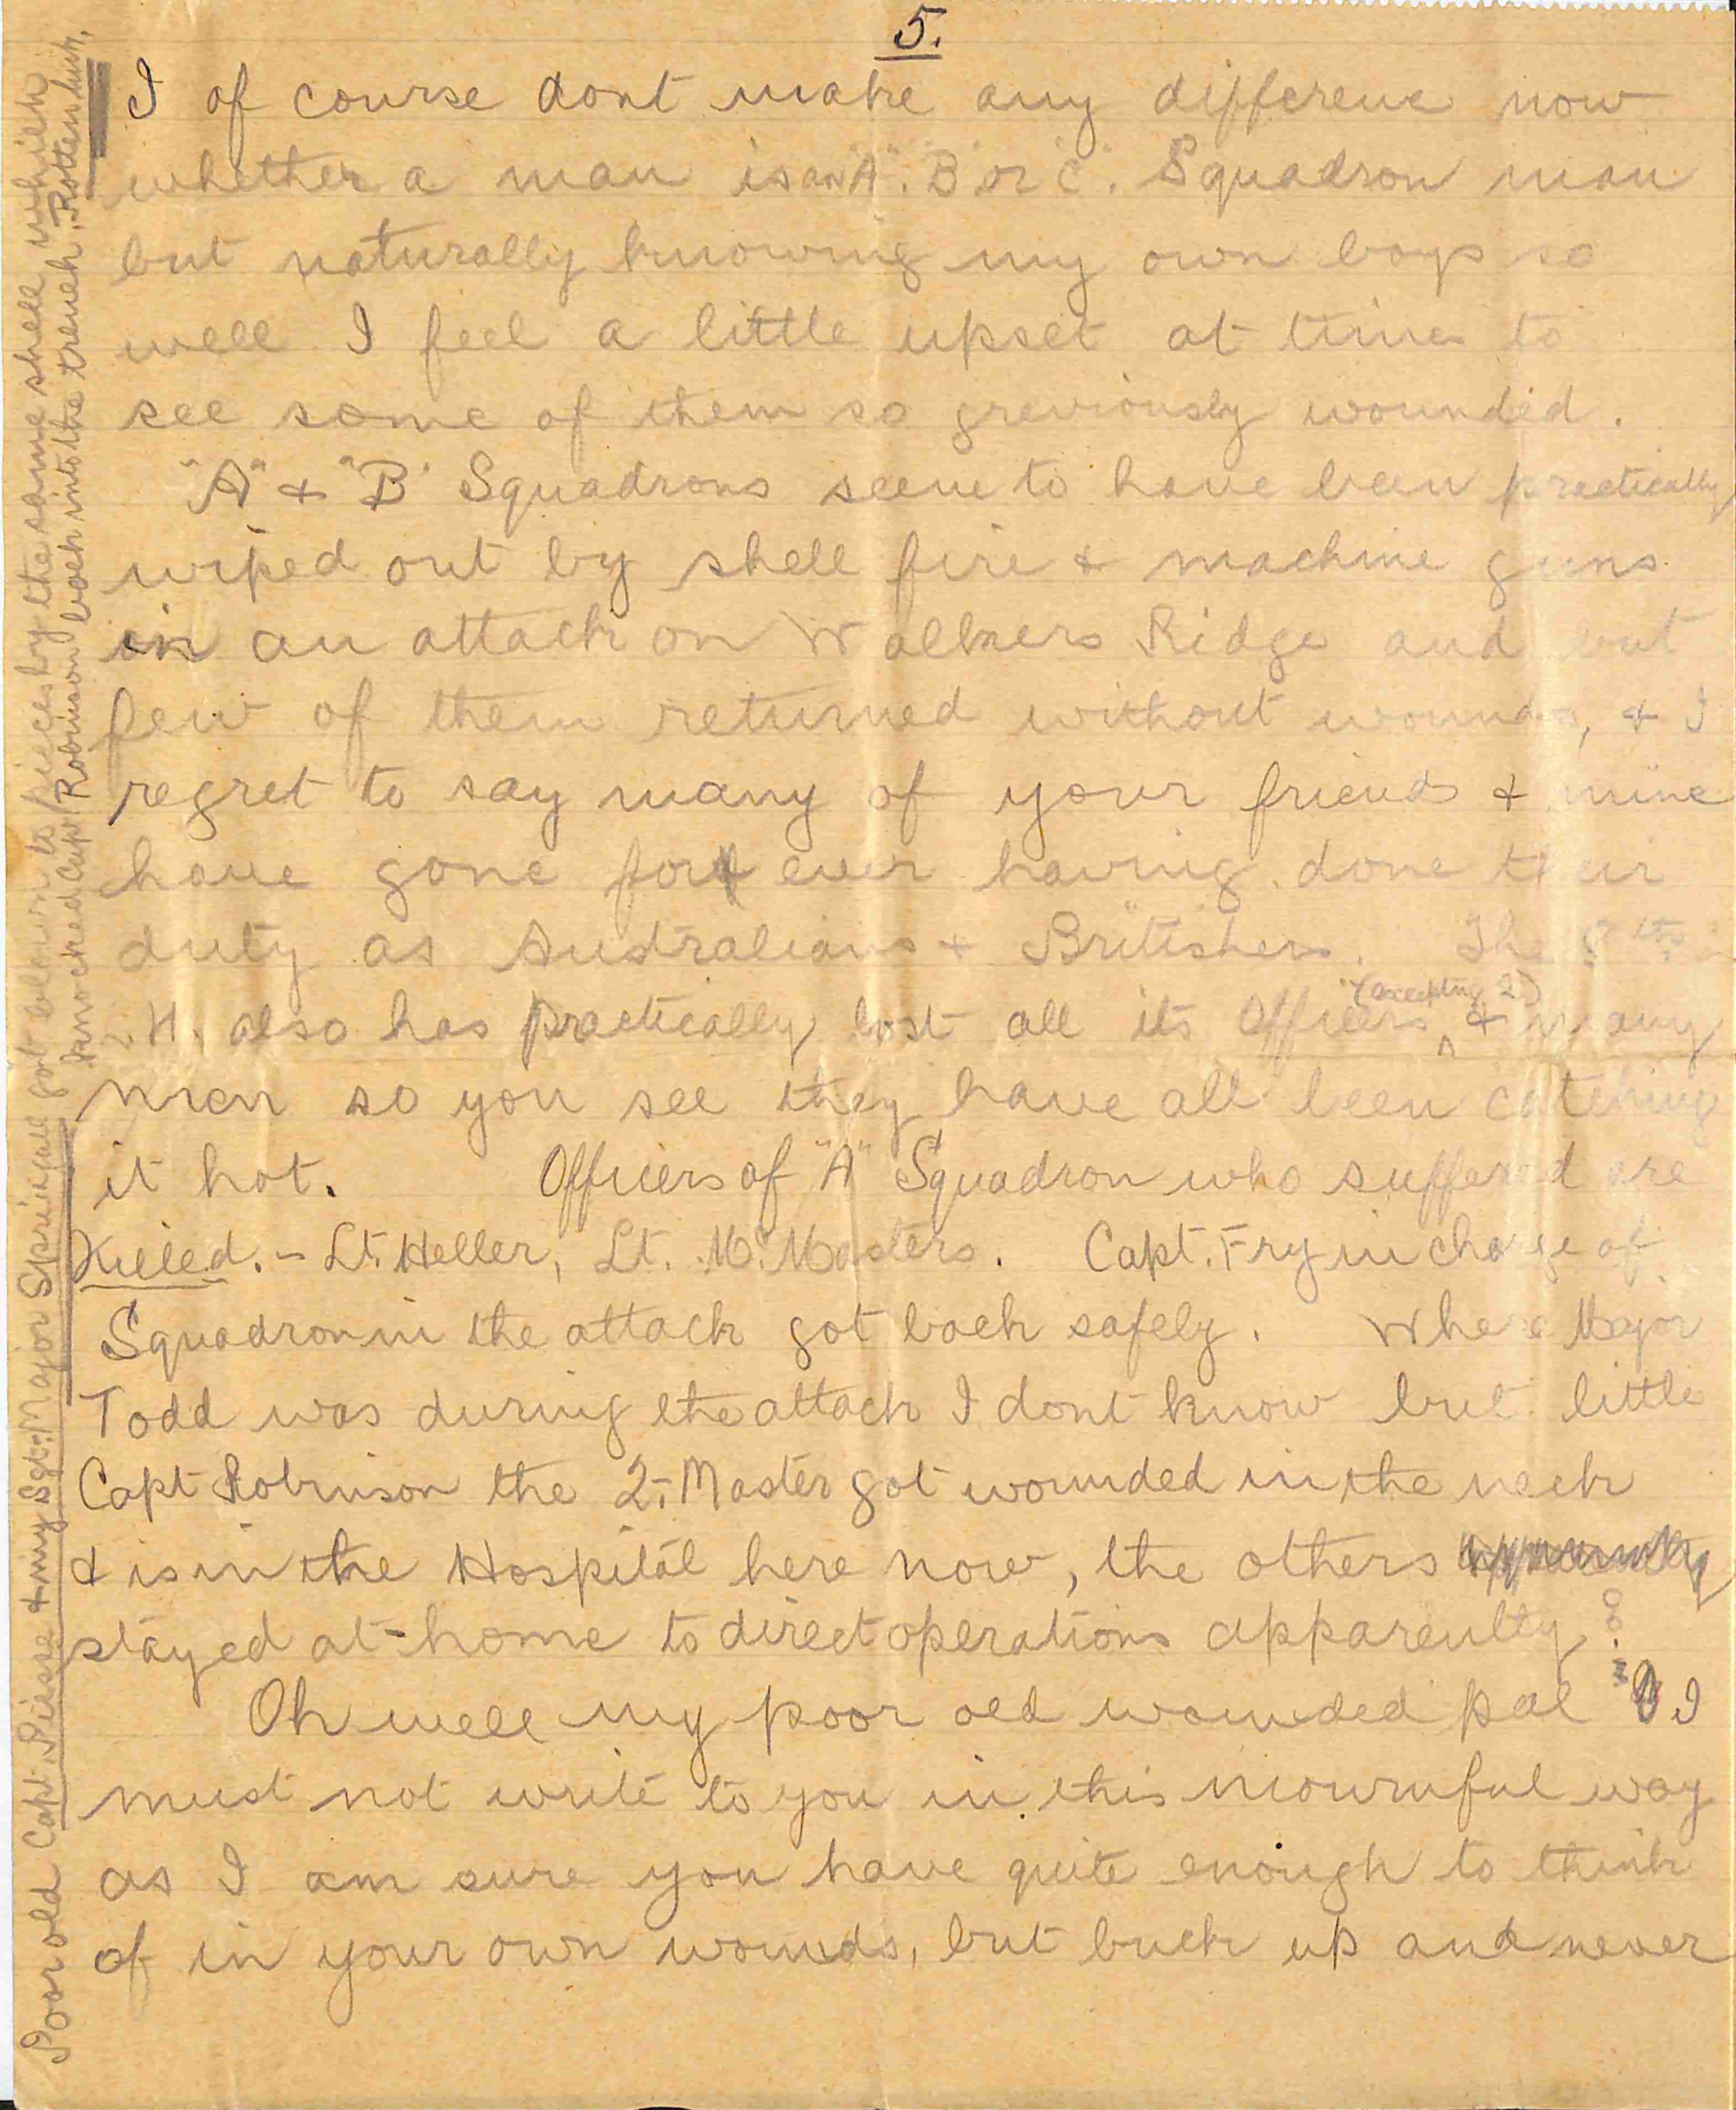 5.
I of course dont make any differenc now
whether a man is an "A". "B" or "C". Squadron man
but naturally knowing my own boys so
well I feel a little upset at times to
see some of them so greviously wounded.
"A" & "B" Squadrons seem to have been practically
wiped out by shell fire & machine guns
in an attack on Walkers Ridge and but
few of them returned without wounds, & I
regret to say many of your friends & mine
have gone for ever having done their
duty as Australians & Britishers. The
L. H. also has practically lost all its Officers (excepting 2) & many
men so you see they have all been catching
it hot. Officers of "A" Squadron who suffered are
Killed. - Lt. Heller, Lt. McMasters. Capt. Fry in charge of
Squadron in the attack got back safely. Where Major
Todd was during the attack I dont know but little
Capt Robinson the 2. Master got wounded in the neck
& is in the Hospital here now, the others apparently
stayed at-home to direct operations apparently
Oh well my poor old wounded pal I
must not write to you in this mournful way
as I am sure you have quite enough to think
of in your own wounds, but buck up and never
Poor old Capt. Piesse & my Sgt: Major Springall got blown to pieces by the same shell which
knocked Capt Robinson back into the trench. Rotten luck.